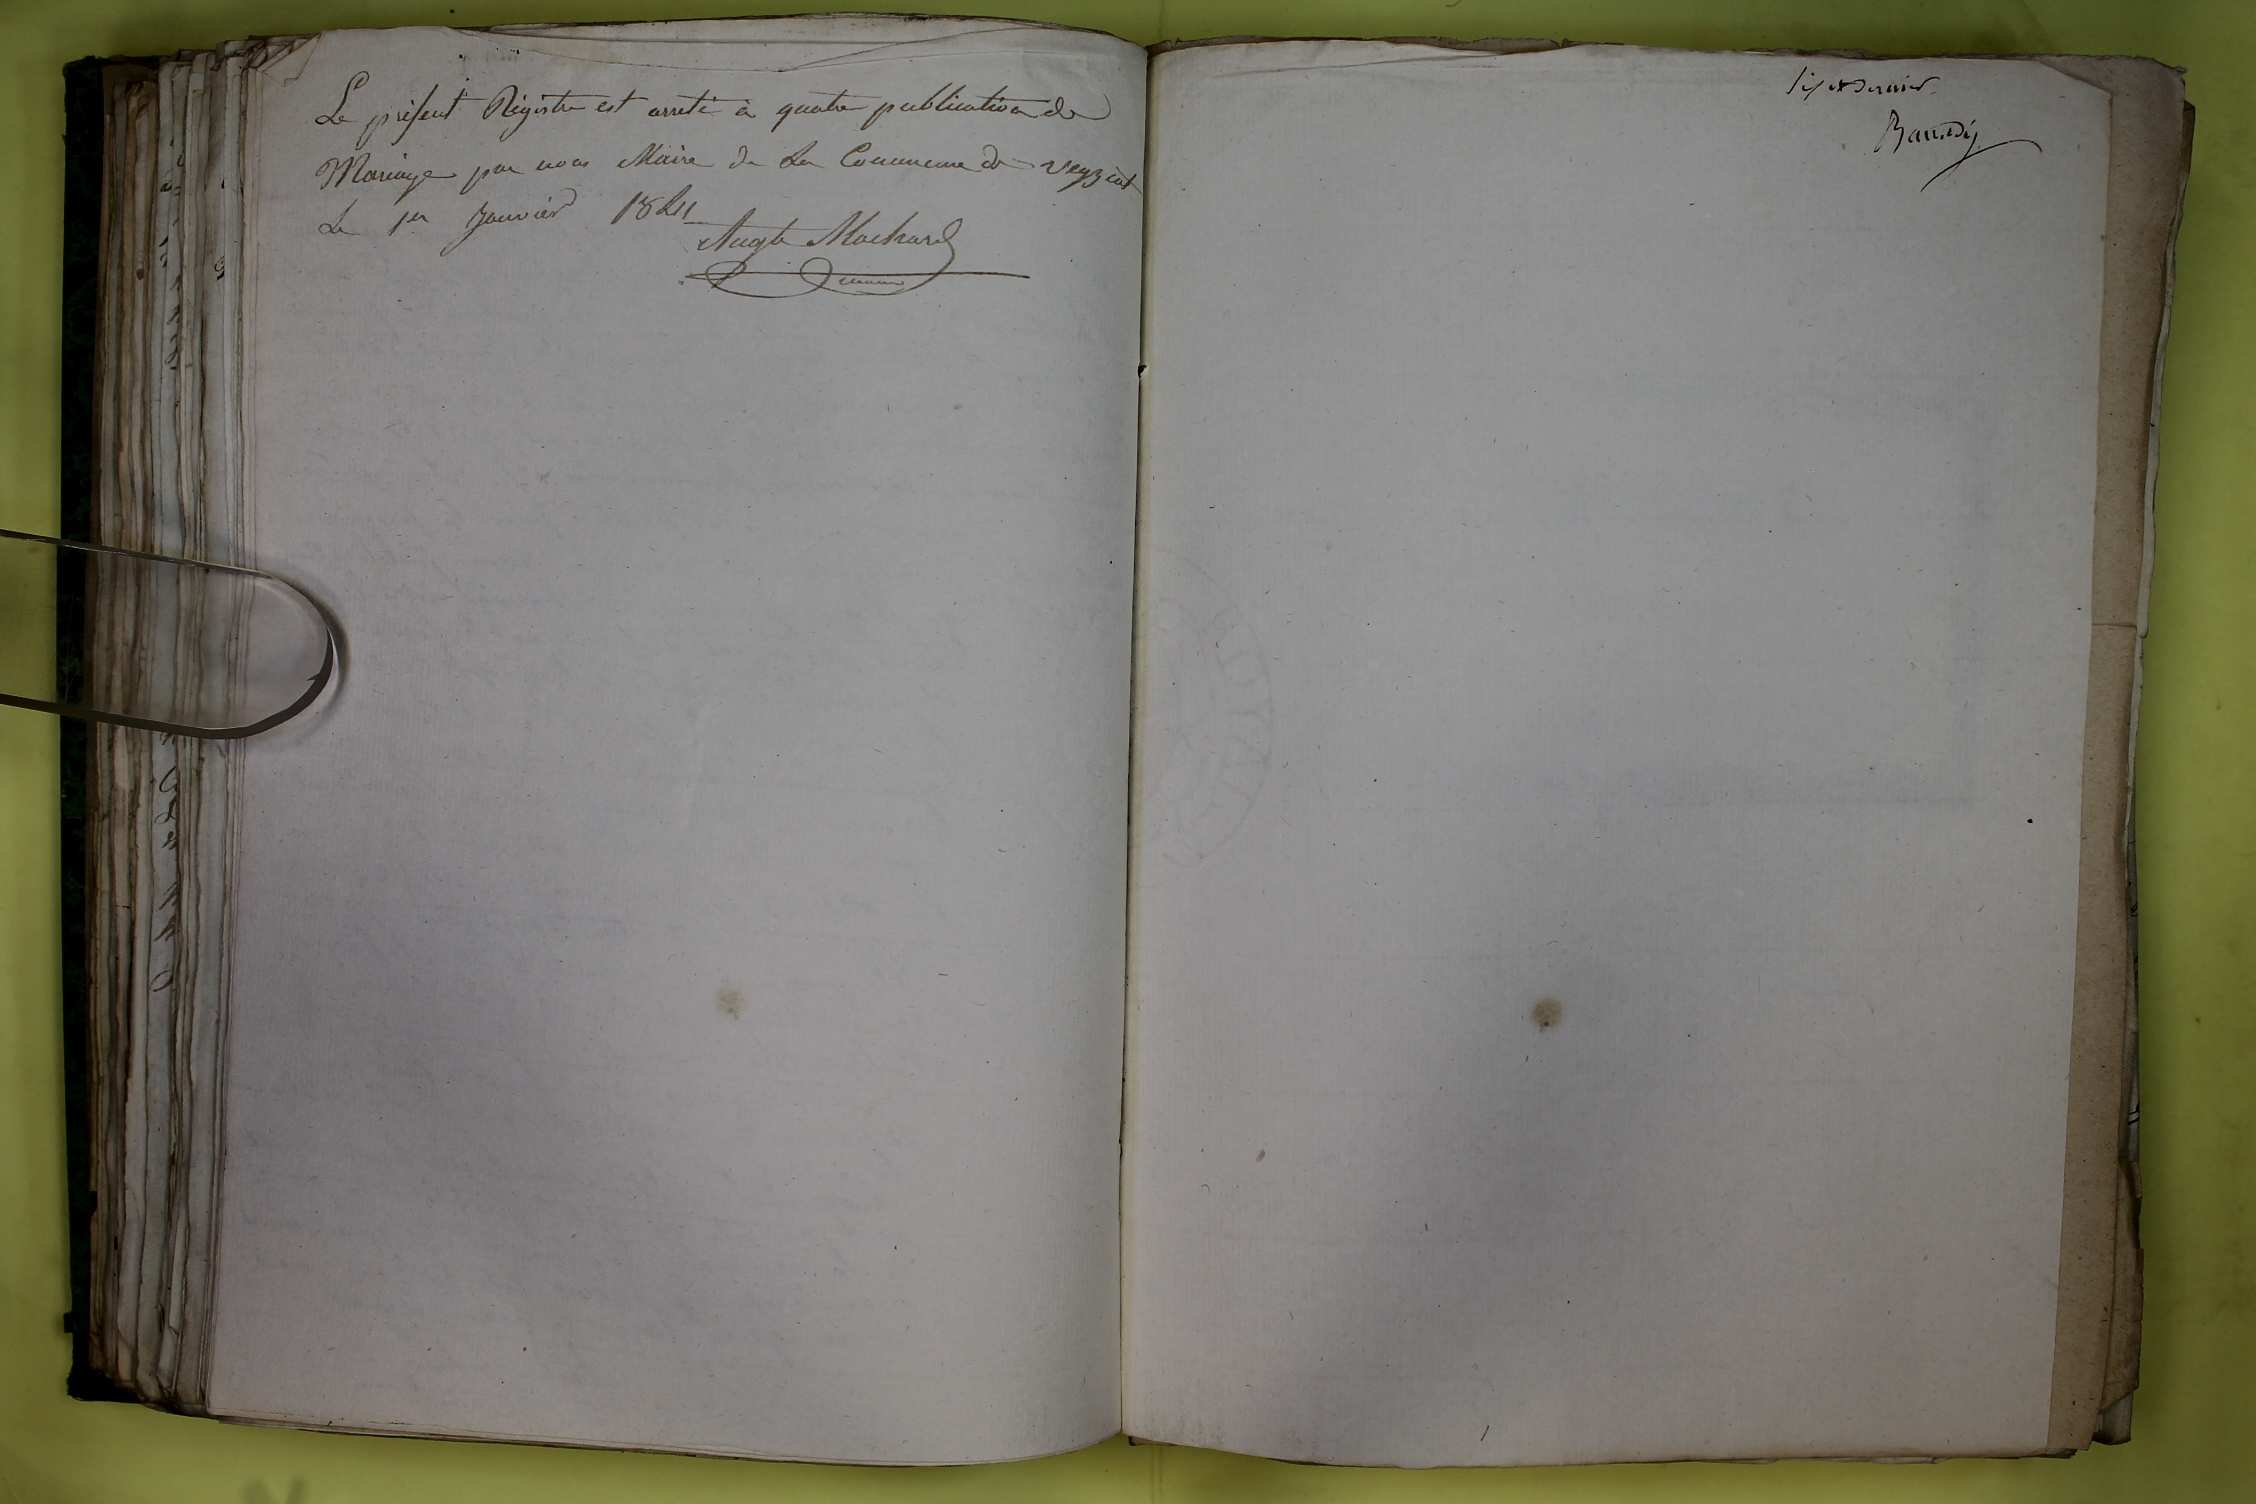 Le présent Régistre est arreté à quatre publication de
Mariage par nous Maire de La Commune de Veyziat
Le 1er Janvier 1841
Augte Machard
maire
six et dernier